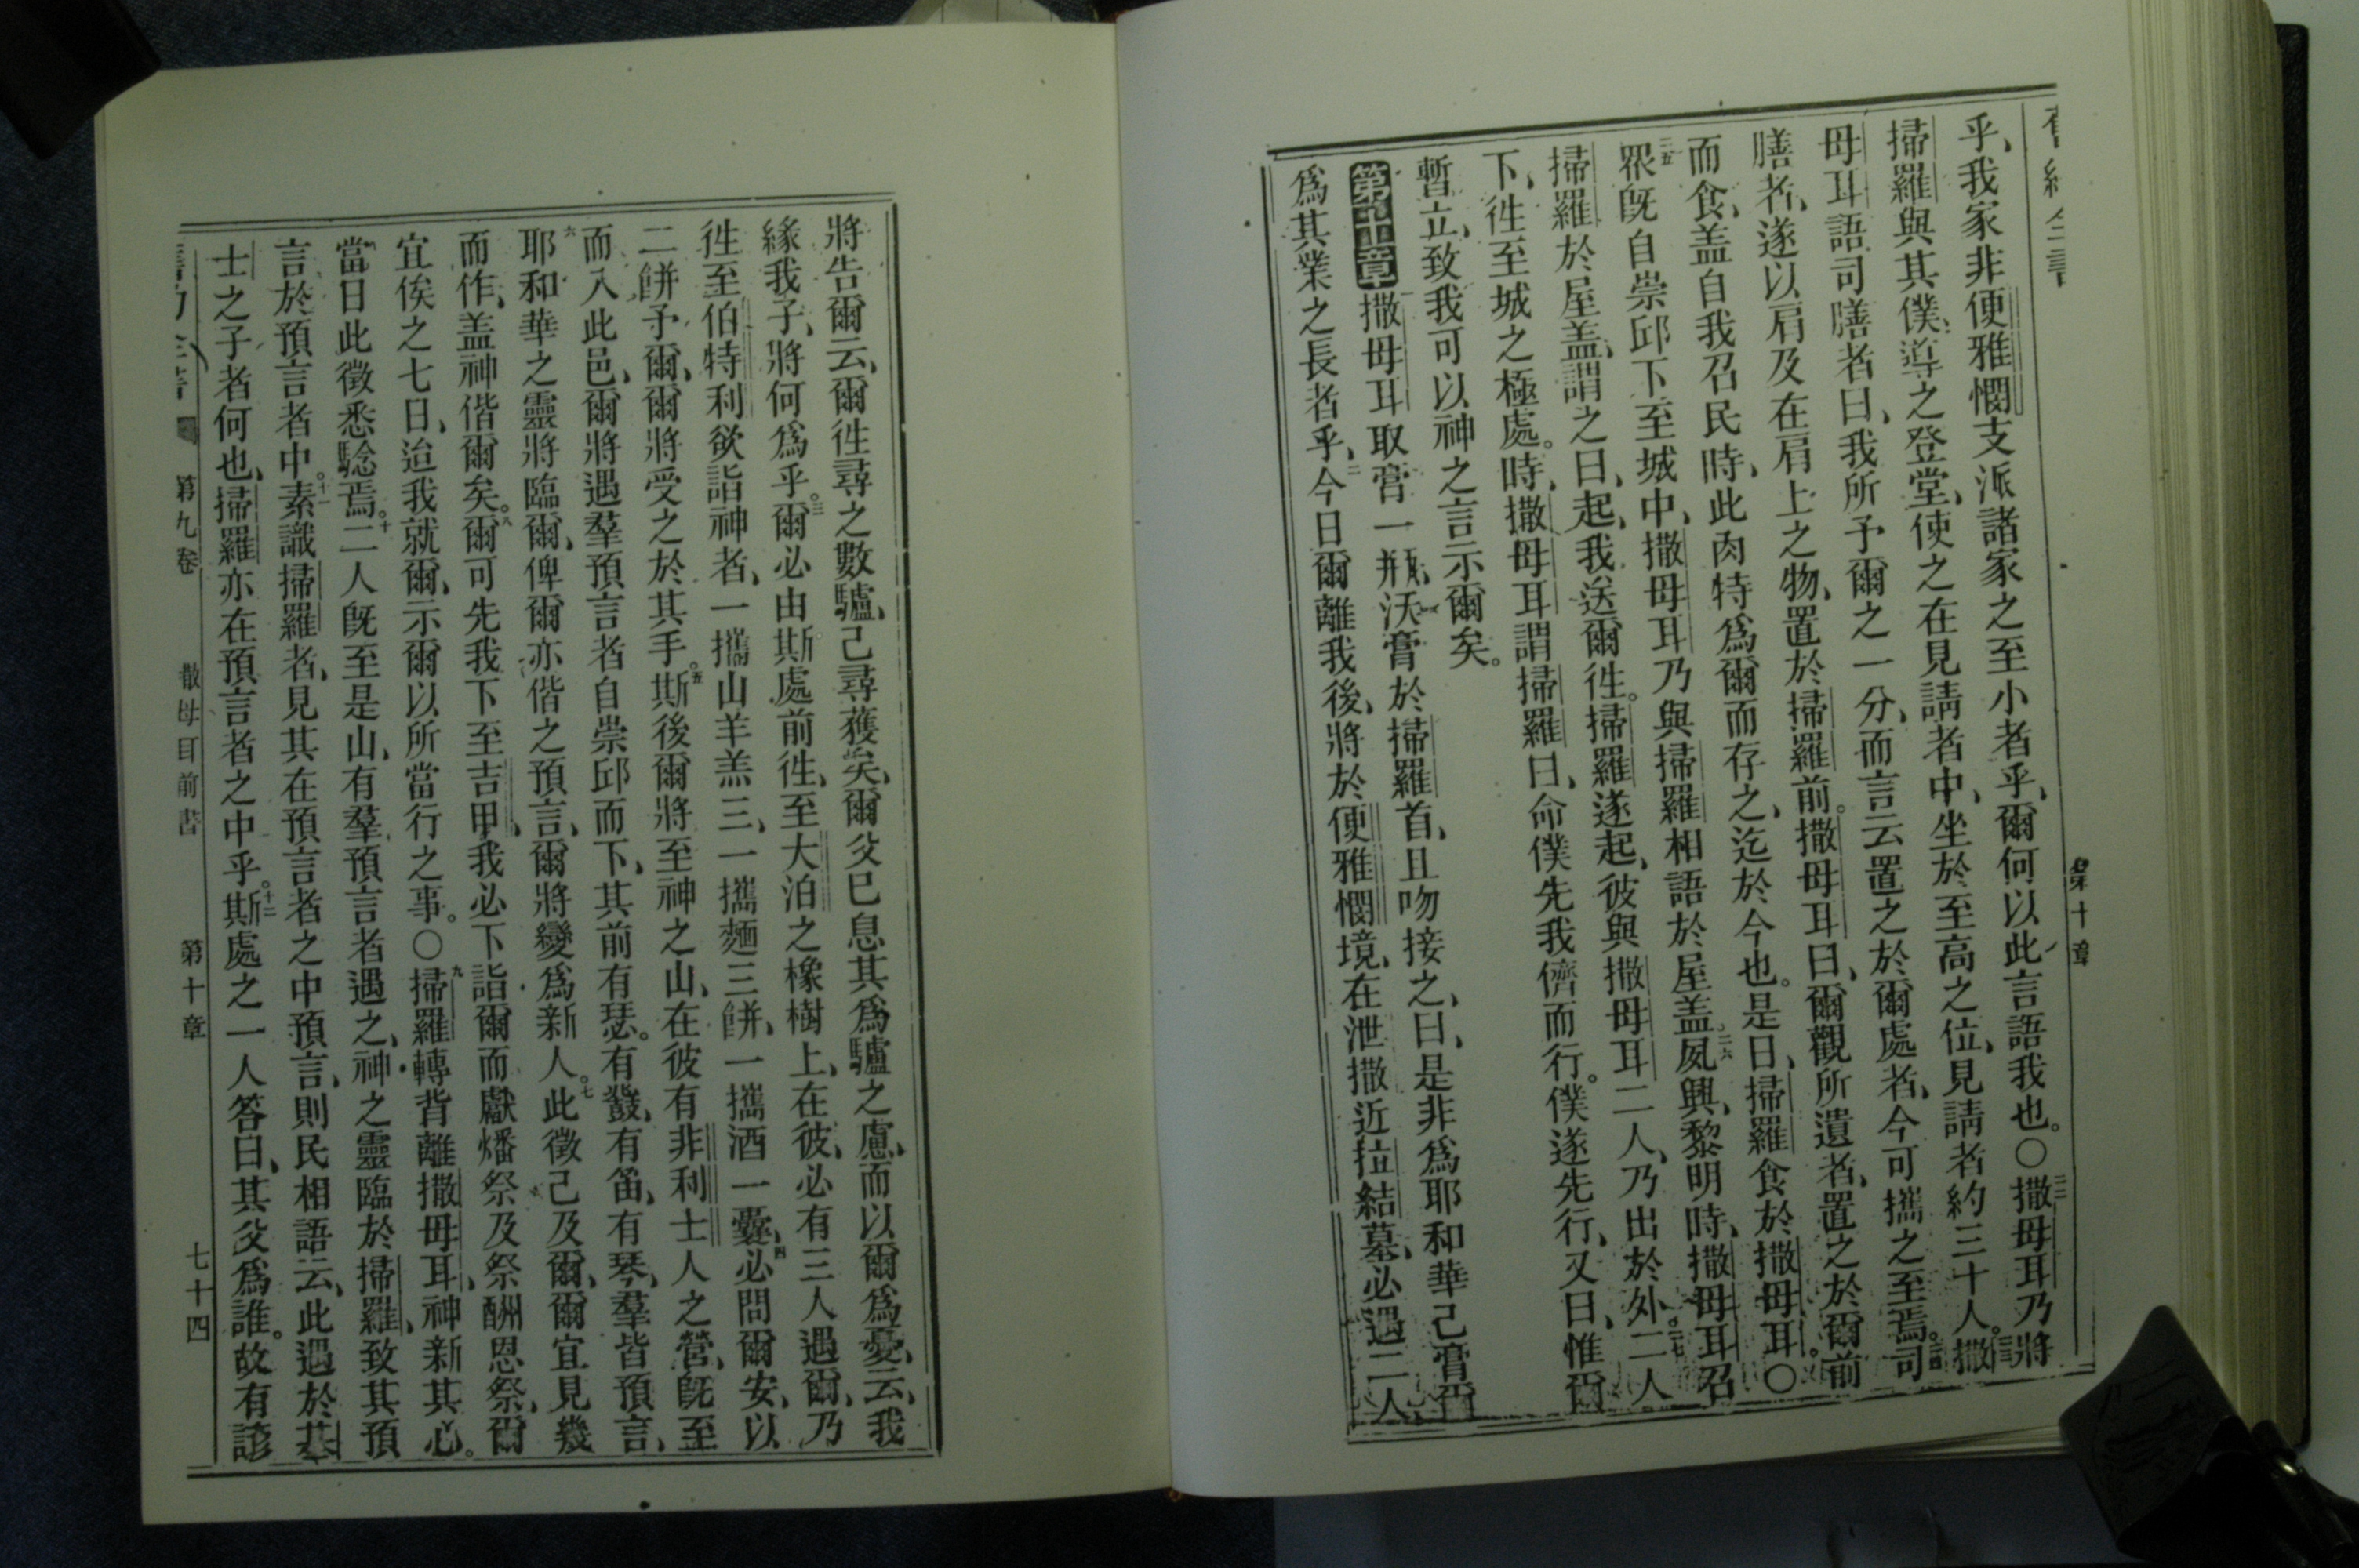 第十章
乎、我家非便雅憫支派諸家之至小者乎、爾何以此言語我也。○二二撒母耳乃將
掃羅與其僕、導之登堂、使之在見請者中、坐於至高之位、見請者約三十人。二三撒
母耳語司膳者曰、我所予爾之一分、而言云置之於爾處者、今可攜之至焉。二四司
膳者、遂以肩及在肩上之物、置於掃羅前。撒母耳曰、爾觀所遺者、置之於爾前
而食、盖自我召民時、此肉特爲爾而存之、迄於今也。是日、掃羅食於撒母耳。○
二五眾既自崇邱下至城中、撒母耳乃與掃羅相語於屋盖。二六夙興、黎明時、撒母耳召
掃羅於屋盖、謂之曰、起、我送爾徃。掃羅遂起、彼與撒母耳二人、乃出於外。二七二人
下、徃至城之極處。時、撒母耳謂掃羅曰、命僕先我儕而行。僕遂先行、又曰、惟爾
暫立、致我可以神之言示爾矣。
第十章一撒母耳取膏一瓶、沃膏於掃羅首、且吻接之、曰、是非爲耶和華己膏爾
爲其業之長者乎、二今日爾離我後、將於便雅憫境、在泄撒近拉結墓、必遇二人、
將告爾云、爾徃尋之數驢、己尋獲矣、爾父已息其爲驢之慮、而以爾爲憂、云、我
緣我子、將何爲乎。三爾必由斯處前徃、至大泊之橡樹上、在彼、必有三人遇爾、乃
徃至伯特利欲詣神者、一攜山羊羔三、一攜麵三餅、一攜酒一囊、四必問爾安、以
二餅予爾、爾將受之於其手。五斯後爾將至神之山、在彼有非利士人之營、既至
而入此邑、爾將遇羣預言者自崇邱而下、其前有瑟。有鼗、有笛、有琴、羣皆預言、
六耶和華之靈將臨爾、俾爾亦偕之預言、爾將變爲新人。七此徵己及爾、爾宜見幾
而作、盖神偕爾矣。八爾可先我下至吉甲、我必下詣爾而獻燔祭及祭酬恩祭、爾
宜俟之七日、迨我就爾、示爾以所當行之事。○九掃羅轉背離撒母耳、神新其心。
當日此徵悉騐焉。十二人既至是山、有羣預言者遇之、神之靈臨於掃羅、致其預
言於預言者中。十一素識掃羅者、見其在預言者之中預言、則民相語云、此遇於基
士之子者何也、掃羅亦在預言者之中乎。十二斯處之一人答曰、其父爲誰。故有諺
第九卷 撒母耳前書 第十章 七十四